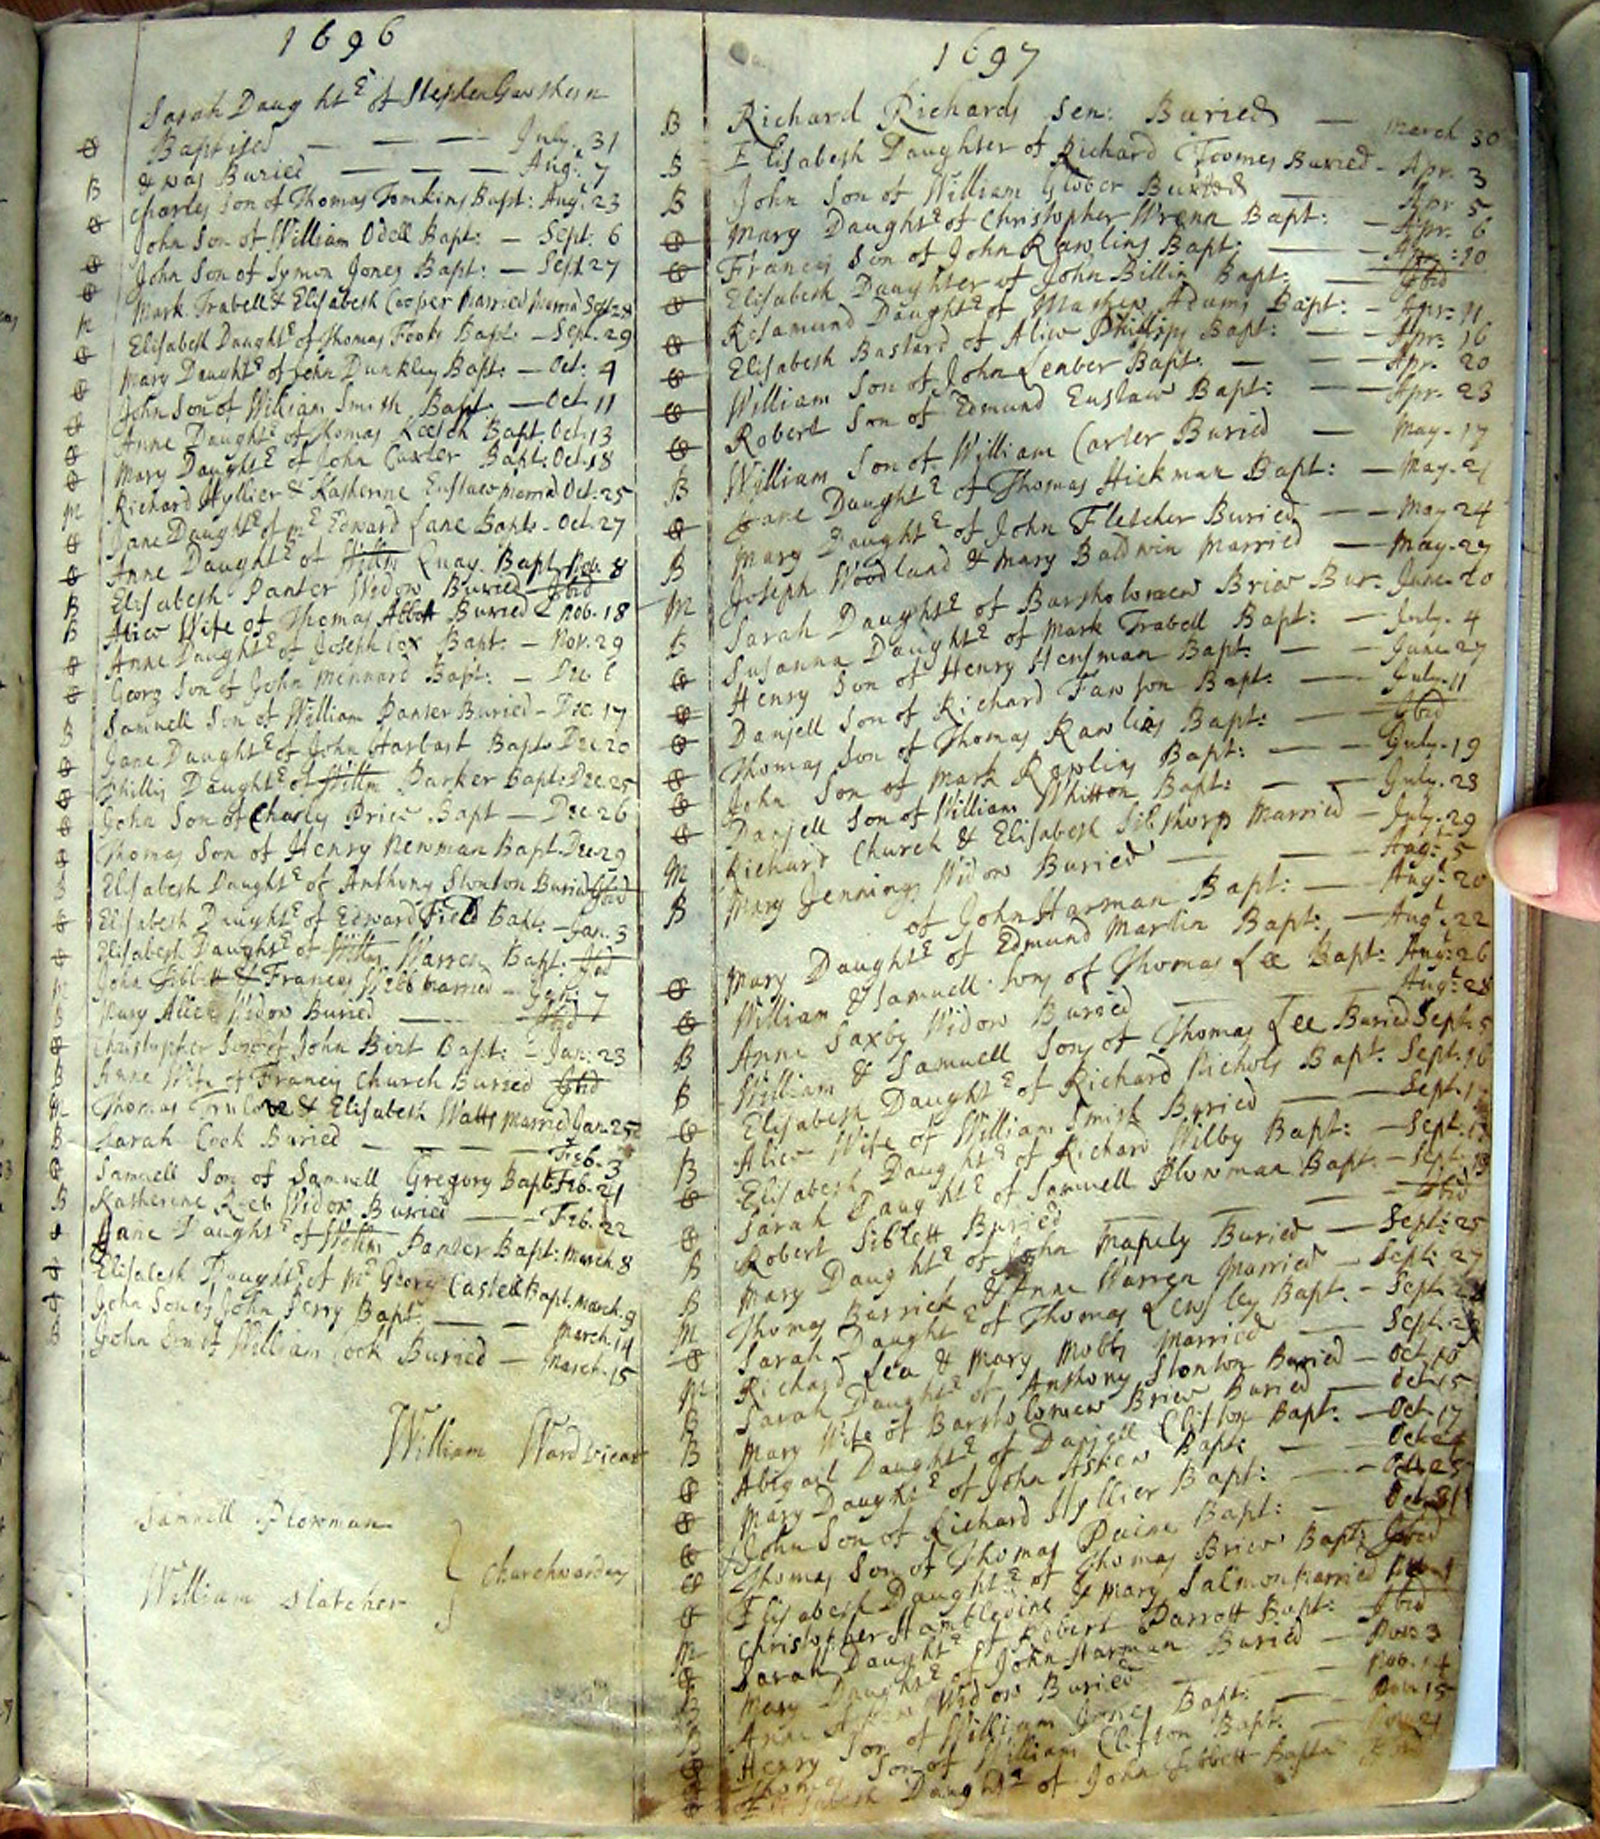 1696
Sarah Daught^r of Stephen
Baptised — — — July. 31
B & was Buried — — — Aug^t 7
Charles Son of Thomas Tomkins Bapt: Aug^t. 23
John Son of William Odell Bapt: — Sept: 6
John Son of Symon Jones Bapt: — Sept. 27
M Mark Trabell & Elisabeth Cooper Married Sept 28
Elisabeth Daught^r of Thomas Bapt: — Sept. 29
Mary Daught^r of John Dunkley Bapt: — Oct: 4
John Son of William Smith Bapt. — Oct. 11
Anne Daught^r of Thomas Bapt. Oct. 13
Mary Daught^r of John Bapt: Oct. 18
M Richard Hyllier & Katherine Eustace Married Oct: 25
Jane Daught^r of M^r Edward Lane Bapt: — Oct. 27
Anne Daught^r of Willm Quay Bapt: Nov. 8
B Elisabeth Panter Widow Buried Ibid
B Alice Wife of Thomas Abbott Buried Nov. 18
Anne Daught^r of Joseph Cox Bapt: — Nov. 29
Georg Son of John Mennard Bapt: — Dec 6
B Samuell Son of William Panter Buried — Dec. 17
Jane Daught^r of John Bapt: Dec 20
Phillis Daught^r of Willm Parker Bapt: Dec. 25
John Son of Charles Price Bapt — Dec. 26
Thomas Son of Henry Newman Bapt. Dec. 29
B Elisabeth Daught^r of Anthony Stonton Buried Ibid
Elisabeth Daught^r of Edward Field Bapt: — Jan. 3
Elisabeth Daught^r of Willm Warren Bapt: Ibid
M John Sibbett & Frances Webb Married — Jan: 7
B Mary Widow Buried — Ibid
Christopher Son of John Birt Bapt: — Jan: 23
B Anne Wife of Francis Church Buried Ibid
M Thomas Trulove & Elisabeth Watts Married Jan. 25
B Sarah Cook Buried — — — Feb. 3
Samuell Son of Samuell Gregory Bapt: Feb. 21
B Katherine Widow Buried — — Feb. 22
Jane Daught^r of Willm Panter Bapt: March. 8
Elisabeth Daught^r of M^r Georg Castell Bapt. March. 9
John Son of John Perry Bapt: — — March. 14
B John Son of William Cook Buried — March. 15
William Ward vicar
Samuell Plowman
Churchwardens
William Slatcher
1697
B Richard Richards Sen: Buried — March 30
B Elisabeth Daughter of Richard Toomes Buried — Apr. 3
B John Son of William Glover Buried — Apr 5
Mary Daught^r of Christopher Wrenn Bapt: — Apr. 6
Francis Son of John Rawlins Bapt: — Apr: 10
Elisabeth Daughter of John Billin Bapt: — Ibid
Rosamund Daught^r of Mathew Adams Bapt: — Apr: 11
Elisabeth Bastard of Alice Phillips Bapt: — Apr: 16
William Son of John Lenber Bapt: — — Apr. 20
Robert Son of Edmund Eustace Bapt: — Apr. 23
B William Son of William Carter Buried — May. 17
Jane Daught^r of Thomas Hickman Bapt: — May. 21
B Mary Daught^r of John Fletcher Buried — May 24
M Joseph Woodland & Mary Baldwin Married — May. 27
B Sarah Daught^r of Bartholomew Brice Bur: June. 20
Susanna Daught^r of Mark Trabell Bapt: — July. 4
Henry Son of Henry Hensman Bapt: — — June. 27
Danjell Son of Richard Fawson Bapt: — July. 11
Thomas Son of Thomas Rawlins Bapt: — Ibid
John Son of Mark Rawlins Bapt: — — July. 19
Danjell Son of William Whitton Bapt: — — July. 28
M Richard Church & Elisabeth Sibthorp Married — July. 29
B Mary Jennings Widow Buried — — Aug^t: 5
of John Harman Bapt: — Aug^t. 20
Mary Daught^r of Edmund Martin Bapt: — Aug^t. 22
William & Samuell Sons of Thomas Lee Bapt: Aug^t: 26
B Anne Saxby Widow Buried — — Aug^t: 28
B William & Samuell Sons of Thomas Lee Buried Sept. 5
Elisabeth Daught^r of Richard Nichols Bapt: Sept. 16
B Alice Wife of William Smith Buried — — Sept. 17
Elisabeth Daught^r of Richard Wilby Bapt: — Sept.
Sarah Daught^r of Samuell Plowman Bapt: — Sept.
B Robert Siblett Buried — — — Ibid
B Mary Daught^r of John Mapely Buried — Sept: 25
M Thomas Barrick & Anne Warren Married — Sept: 27
Sarah Daught^r of Thomas Lewsley Bapt. — Sept.
M Richard Lea & Mary Mobbs Married — Sept.
B Sarah Daught^r of Anthony Stonton Buried — Oct. 10
B Mary Wife of Bartholomew Brice Buried — Oct. 15
Abigail Daught^r of Danjell Clifton Bapt: — Oct. 17
Mary Daught^r of John Askew Bapt: — Oct.
John Son of Richard Hyllier Bapt: — Oct. 25
Thomas Son of Thomas Paine Bapt: — Oct. 31
Elisabeth Daught^r of Thomas Brice Bapt: Ibid
M Christopher Hambledine & Mary Salmon Married Nov. 1
Sarah Daught^r of Robert Parrott Bapt: Ibid
B Mary Daught^r of John Harman Buried — Nov: 3
B Anne Widow Buried — — Nov. 14
Henry Son of William Jones Bapt: — Nov. 15
Thomas Son of William Clifton Bapt: — Nov. 21
Elisabeth Daught^r of John Sibbett Bapt: